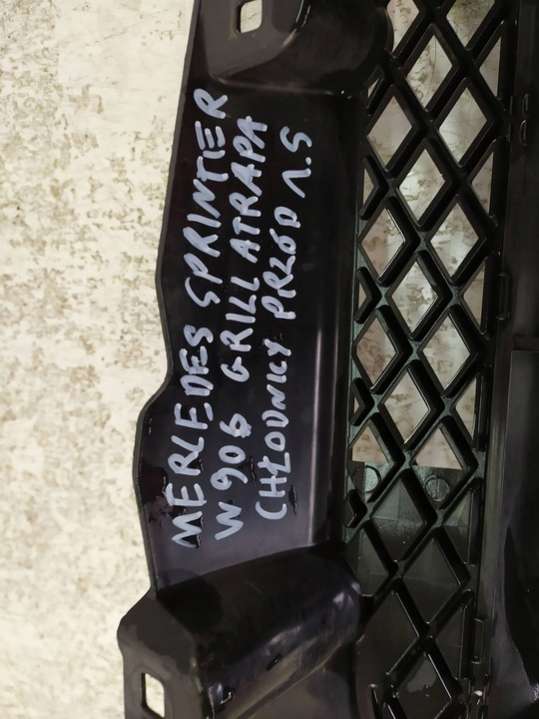 MERCEDES SPRINTER
W906 GRILL ATRAPA
CHŁODNICY PRZÓD 1.5